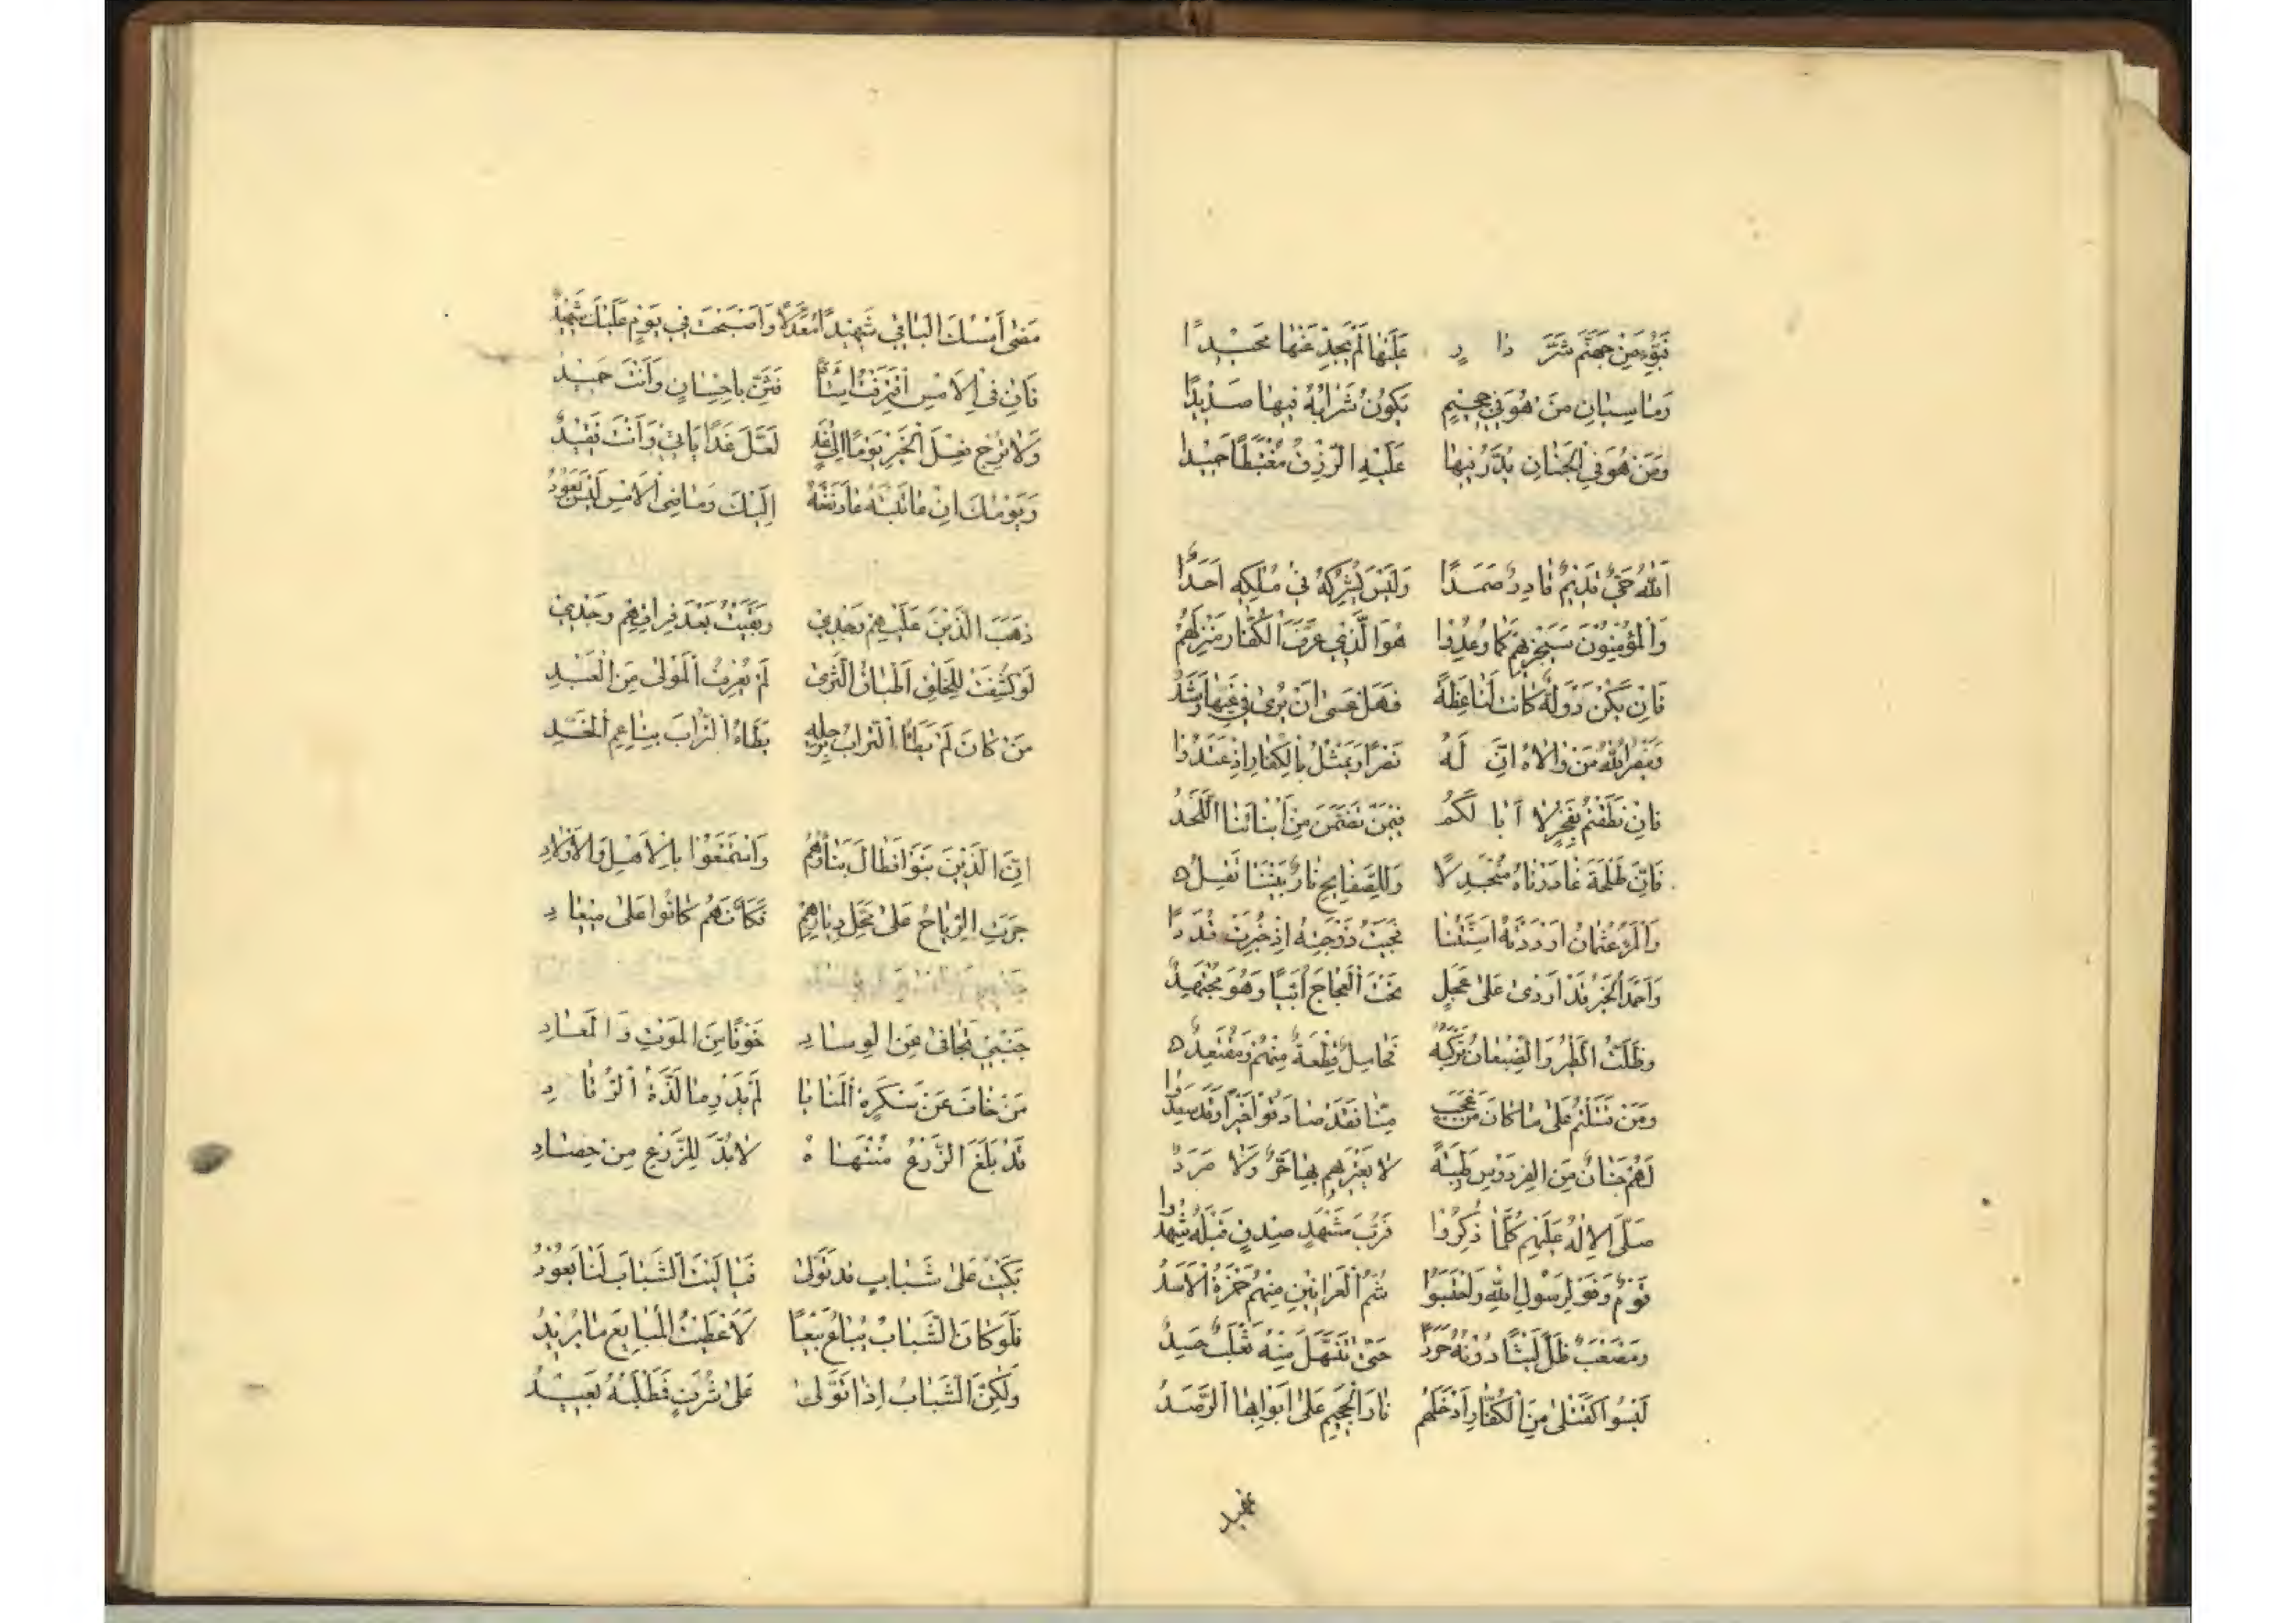 تَبَوَّءَ مِنْ جَهَنَّمَ شَرَّ دَارٍ عَلَيْهَا لَمْ يَجِدْ عَنْهَا مَحِيْدًا
وَمَا سِيَّانِ مَنْ هُوَ فِي جَحِيْمٍ يَكُونُ شَرَابُهُ فِيهَا صَدِيْدًا
وَمَنْ هُوَ فِي الْجَنَانِ يُدَرُّ فِيهَا عَلَيْهِ الرِّزْقُ مُغْتَبِطًا حَمِيْدًا
اَللهُ حَيٌّ قَدِيْمٌ قَادِرٌ صَمَدًا وَلَيْسَ يُشْرِكُهُ فِي مُلْكِهِ اَحَدًا
هُوَ الَّذِي عَرَّفَ الْكُفَّارَ مَنْزِلَهُمْ وَالْمُؤْمِنُوْنَ سَيَجْزِيهِمْ كَمَا وُعِدُوا
فَاِنْ يَكُنْ دَوْلَةٌ كَانَتْ لَنَا عِظَةً فَهَلْ عَسَى اَنْ يُرَى فِي غَيِّهَا رَشَدُ
وَيَنْصُرُ اللهُ مَنْ وَالَاهُ اِنَّ لَهُ نَصْرًا وَيَمْثُلُ بِالْكُفَّارِ اِذْ عَنَدُوا
فَاِنْ نَطَقْتُمْ بِفَخْرٍ لَا اَبَا لَكُمُ فِيْمَنْ تَضَمَّنَ مِنْ اَبْنَائِنَا اللَّحَدُ
فَاِنَّ طَلْحَةَ غَادَرْنَاهُ مُنْجَدِلًا وَلِلصَّفَايِحِ نَارٌ بَيْنَنَا تَقِدُ
وَالْمَرْءُ عُثْمَانُ اَرْدَتْهُ اَسِنَّتُنَا فَجَيْبُ زَوْجَتِهِ اِذْ خُبِّرَتْ قُدَدًا
وَظَلَّتْ الطَّيْرُ وَالضِّبْعَانُ تَرْكَبُهُ فَحَامِلٌ قِطْعَةً مِنْهُمْ وَمُقْتَعِدُ
وَمَنْ قَتَلْتُمْ عَلَى مَا كَانَ مِنْ عَجَبٍ مِنَّا فَقَدْ صَادَفُوا خَيْرًا وَقَدْ سَعِدُوا
لَهُمْ جِنَانٌ مِنَ الْفِرْدَوْسِ طَيِّبَةٌ لَا يَعْتَرِيهِمْ بِهَا حَرٌّ وَلَا صَرَدُ
صَلَّى الْاِلٰهُ عَلَيْهِمْ كُلَّمَا ذُكِرُوا فَرُبَّ مَشْهَدِ صِدْقٍ قَبْلَهُ شَهِدُوا
قَوْمٌ وَفَوْا لِرَسُولِ اللهِ وَاحْتَسَبُوا شُمُّ الْعَرَانِيْنِ مِنْهُمْ حَمْزَةُ الْاَسَدُ
وَمُصْعَبٌ ظَلَّ لَيْثًا دُوْنَهُ حَرِدًا
لَيْسُوا كَقَتْلَى مِنَ الْكُفَّارِ اَدْخَلَهُمْ نَارَ الْجَحِيْمِ عَلَى اَبْوَابِهَا الرَّصَدُ
مَضَى اَمْسُكَ الْبَاقِي شَهِيْدًا مُعَدَّلًا وَاَصْبَحْتَ فِي يَوْمٍ عَلَيْكَ شَهِيْدٌ
فَاِنْ فِي الْاَمْسِ اقْتَرَفْتَ فَثَنِّ بِاِحْسَانٍ وَاَنْتَ حَمِيْدُ
وَلَا تُرْجِ فِعْلَ الْخَيْرِ يَوْمًا اِلَى غَدٍ لَعَلَّ غَدًا يَاْتِي وَاَنْتَ فَقِيْدُ
وَيَوْمُكَ اِنْ عَاتَبْتَهُ عَادَ نَفْعُهُ اِلَيْكَ وَمَاضِي الْاَمْسِ لَيْسَ يَعُوْدُ
ذَهَبَ الَّذِيْنَ عَلَيْهِمْ وَجْدِي وَبَقِيْتُ بَعْدَ فِرَاقِهِمْ وَحْدِي
لَوْ كُشِفَتْ لِلْخَلْقِ اَطْبَاقُ الثَّرَى لَمْ يُعْرَفُ الْمَوْلَى مِنَ الْعَبْدِ
مَنْ كَانَ لَمْ يَطَأِ التُّرَابَ بِرِجْلِهِ يَطَأُ التُّرَابَ بِنَاعِمِ الْخَدِّ
اِنَّ الَّذِيْنَ بَنَوْا فَطَالَ بِنَاؤُهُمْ وَاسْتَمْتَعُوْا بِالْاَهْلِ وَالْاَوْلَادِ
جَرَتِ الرِّيَاحُ عَلَى مَحَلِّ دِيَارِهِمْ فَكَاَنَّهُمْ كَانُوا عَلَى مِيْعَادِ
جَنْبِيْ تَجَافَى عَنِ الْوِسَادِ خَوْفًا مِنَ الْمَوْتِ وَالْمَعَادِ
مَنْ خَافَ عَنْ سَكْرَةِ الْمَنَايَا لَمْ يَدْرِ مَا لَذَّةُ الرُّقَادِ
قَدْ بَلَغَ الزَّرْعُ مُنْتَهَاهُ لَا بُدَّ لِلزَّرْعِ مِنْ حِصَادِ
بَكَيْتُ عَلَى شَبَابٍ قَدْ تَوَلَّى فَيَا لَيْتَ الشَّبَابَ لَنَا يَعُوْدُ
فَلَوْ كَانَ الشَّبَابُ يُبَاعُ بَيْعًا لَاَعْطَيْتُ الْمُبَايِعَ مَا يُرِيْدُ
وَلٰكِنَّ الشَّبَابَ اِذَا تَوَلَّى عَلَى شُرُفٍ فَمَطْلَبُهُ بَعِيْدُ